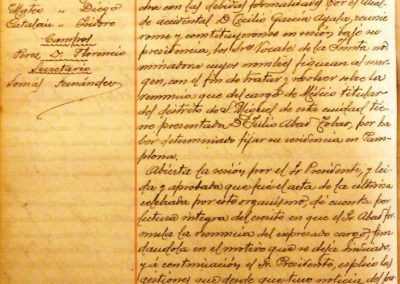 Mateo " Diego
Catalan " Isidro
Campos
Perez D. Florencio
Secretario
Tomás Fernández
dro con las debidas formalidades por el Alcal-
de accidental D. Cecilio García Ayala, reunie-
ronse y constituyeronse en sesión bajo su
presidencia, los Sres Vocales de la Junta no-
minadora cuyos nombres figuran al mar-
gen, con el fin de tratar y resolver sobre la
renuncia que del cargo de Médico titular
del distrito de S. Miguel de esta ciudad tie-
ne presentada D. Julio Abad Tobar, por ha-
ber determinado fijar su residencia en Pam-
plona.
Abierta la sesión por el Sr Presidente, y lei-
da y aprobada que fue el acta de la última
celebrada por este organismo, dió cuenta por
lectura integra del escrito en que el Sr. Abad for-
mula la renuncia del expresado cargo, fun-
dandola en el motivo que se deja indicado,
y á continuación el Sr. Presidente, explicó las
gestiones que desde que tuvo noticia del